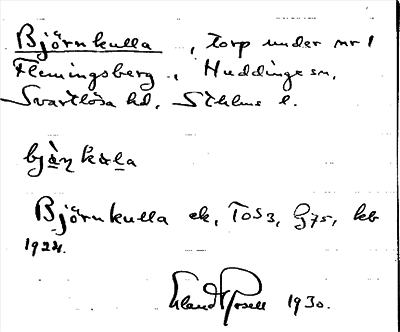 Björnkulla, torp under nr 1
Flemingsberg, Huddinge sn,
Svartlösa hd, Sthlms l.
Björnkulla ek, TOS3, G75, kb
1924.
Erland Rosell 1930.